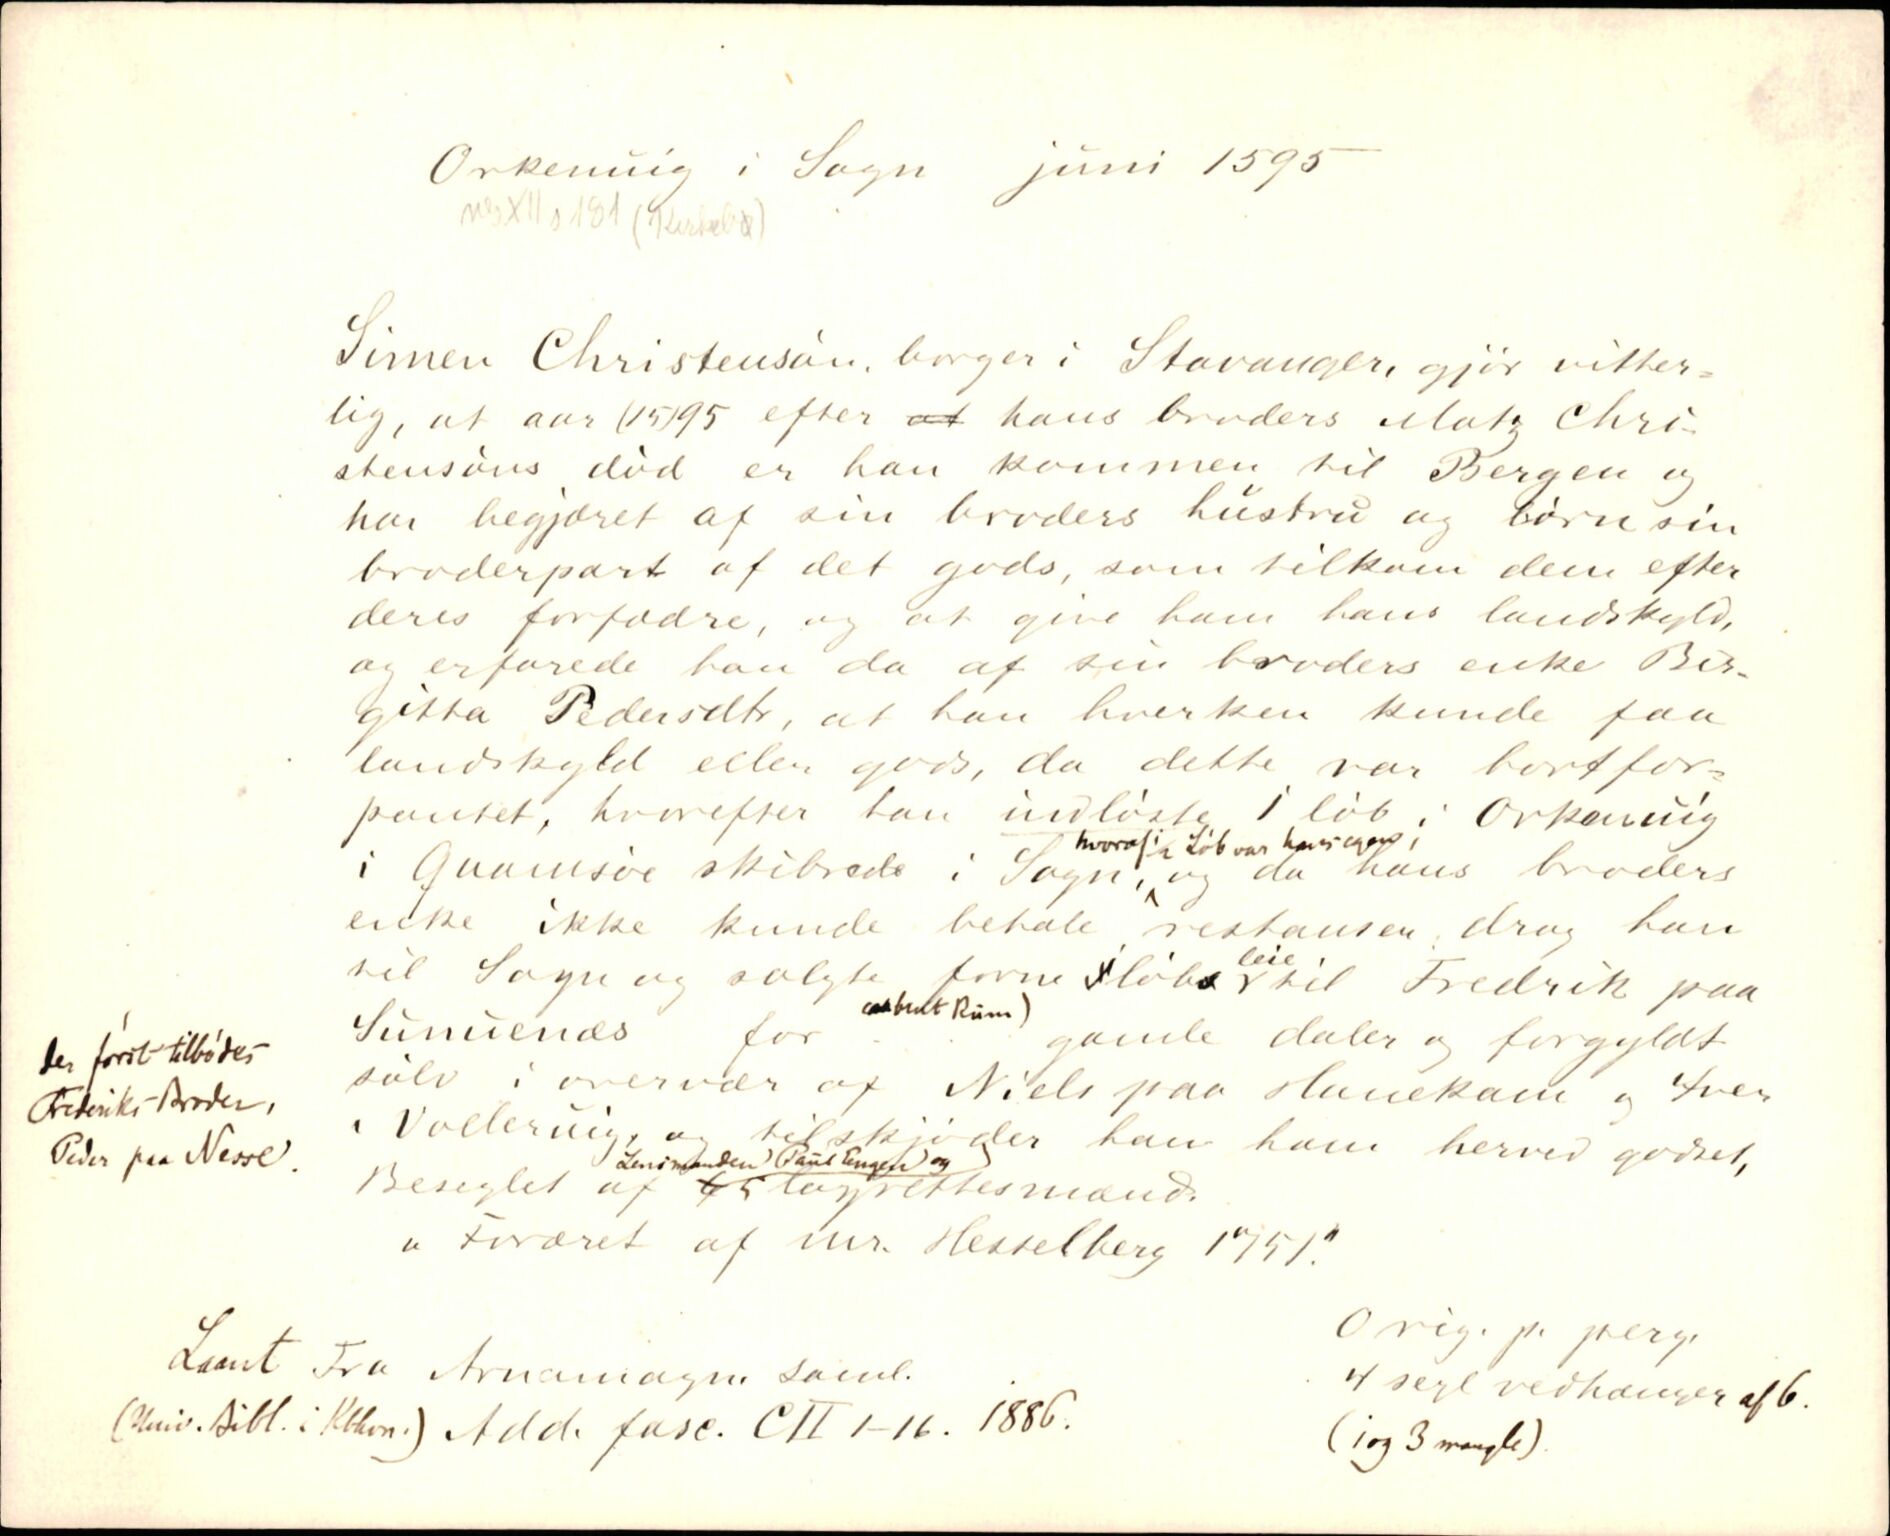 Orkenuig i Sogn juni 1595
NG XII s 181 (Kirkebø)
Simen Christensøn, borger i Stavanger, gjör vitter-
lig, at aar (15)95 efter at hans broders Matz Chri-
stensöns död er han kommen til Bergen og
har begjæret af sin broders hustru og börn sin
broderpart af det gods, som tilkom dem efter
deres forfædre, og at give ham hans landskyld,
og erfarede han da af sin broders enke Bir-
gitta Pedersdtr, at han hverken kunde faa
landskyld eller gods, da dette var bortfor-
pantet, hvorefter han indlöste 1 löb i Orkenuig
hvoraf ½ Löb var hans egen,
i Quamsöe skibrede i Sogn, og da hans broders
enke ikke kunde betale restansen, drog han
til Sogn og solgte forne 1 löbs leie til Fredrik paa
Sunuenæs for aabent Rum) gamle daler og forgyldt
sölv i overvær af Niels paa Hanekam og Iver
i Volleruig, og tilskjöder han ham herved godset,
Lensmanden (Paul Engen) og
Beseglet af 5 lagrettesmænd.
" Foræret af mr. Hesselberg 1751."
der först tilbödes
Frederiks Broder,
Peder paa Nesse.
Laant Fra Arnamagn. saml.
(Univ. Bibl. i Kbhvn.) Add. fasc. CII 1-16. 1886.
Orig. p. perg.
4 segl vedhænger af 6.
(1 og 3 mangle).